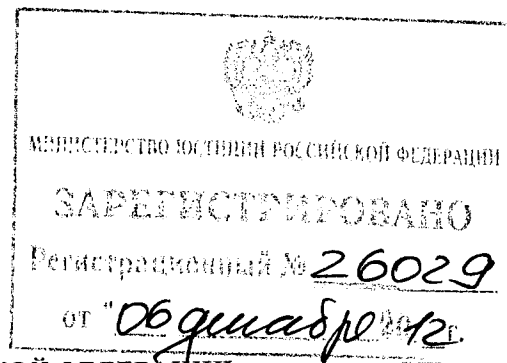 МИНИСТЕРСТВО ЮСТИЦИИ РОССИЙСКОЙ ФЕДЕРАЦИИ
ЗАРЕГИСТРИРОВАНО
Регистрационный № 26029
от "06 декабря 2012 г.